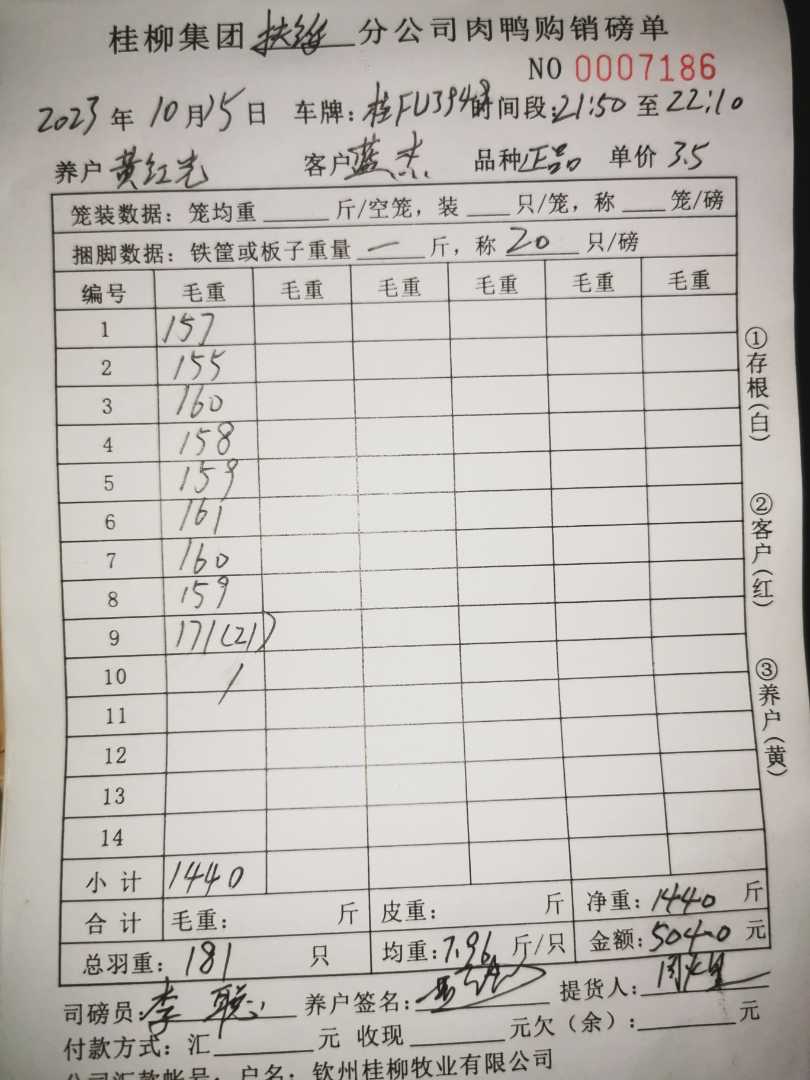 桂柳集团扶绥分公司肉鸭购销磅单
NO 0007186
2023年10月15日 车牌:桂FU3948 时间段:21:50至22:10
养户黄红光 客户蓝杰 品种正品 单价3.5
笼装数据:笼均重____斤/空笼,装____只/笼,称____笼/磅
捆脚数据:铁筐或板子重量一斤,称20只/磅
编号 毛重 毛重 毛重 毛重 毛重 毛重
1 157
2 155
3 160
4 158
5 159
6 161
7 160
8 159
9 171(21)
10 /
11
12
13
14
小计 1440
合计 毛重: 斤 皮重: 斤 净重:1440斤
总羽重:181只 均重:7.96斤/只 金额:5040元
司磅员:李聪 养户签名: 提货人:
付款方式:汇____元 收现____元欠(余):____元
公司汇款帐号:户名:钦州桂柳牧业有限公司
①存根(白)
②客户(红)
③养户(黄)